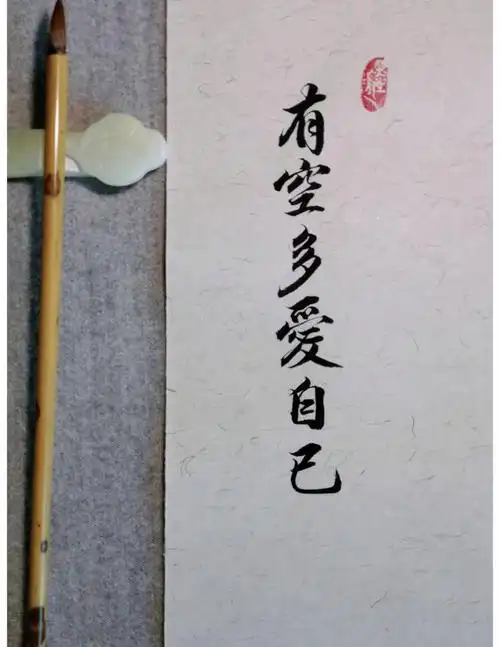 有空多愛自己